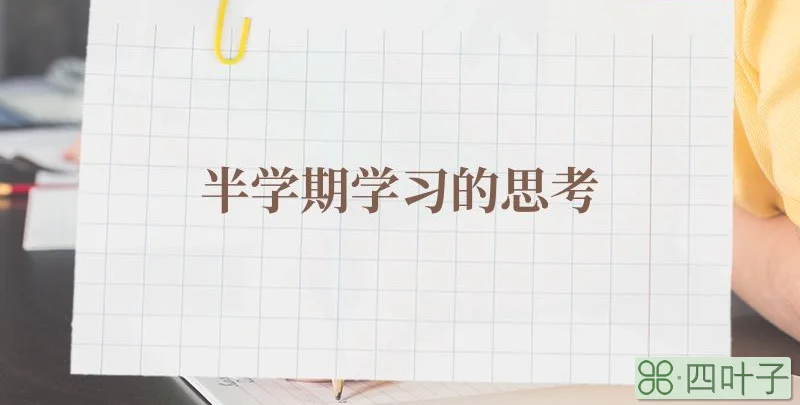 半学期学习的思考
四叶子